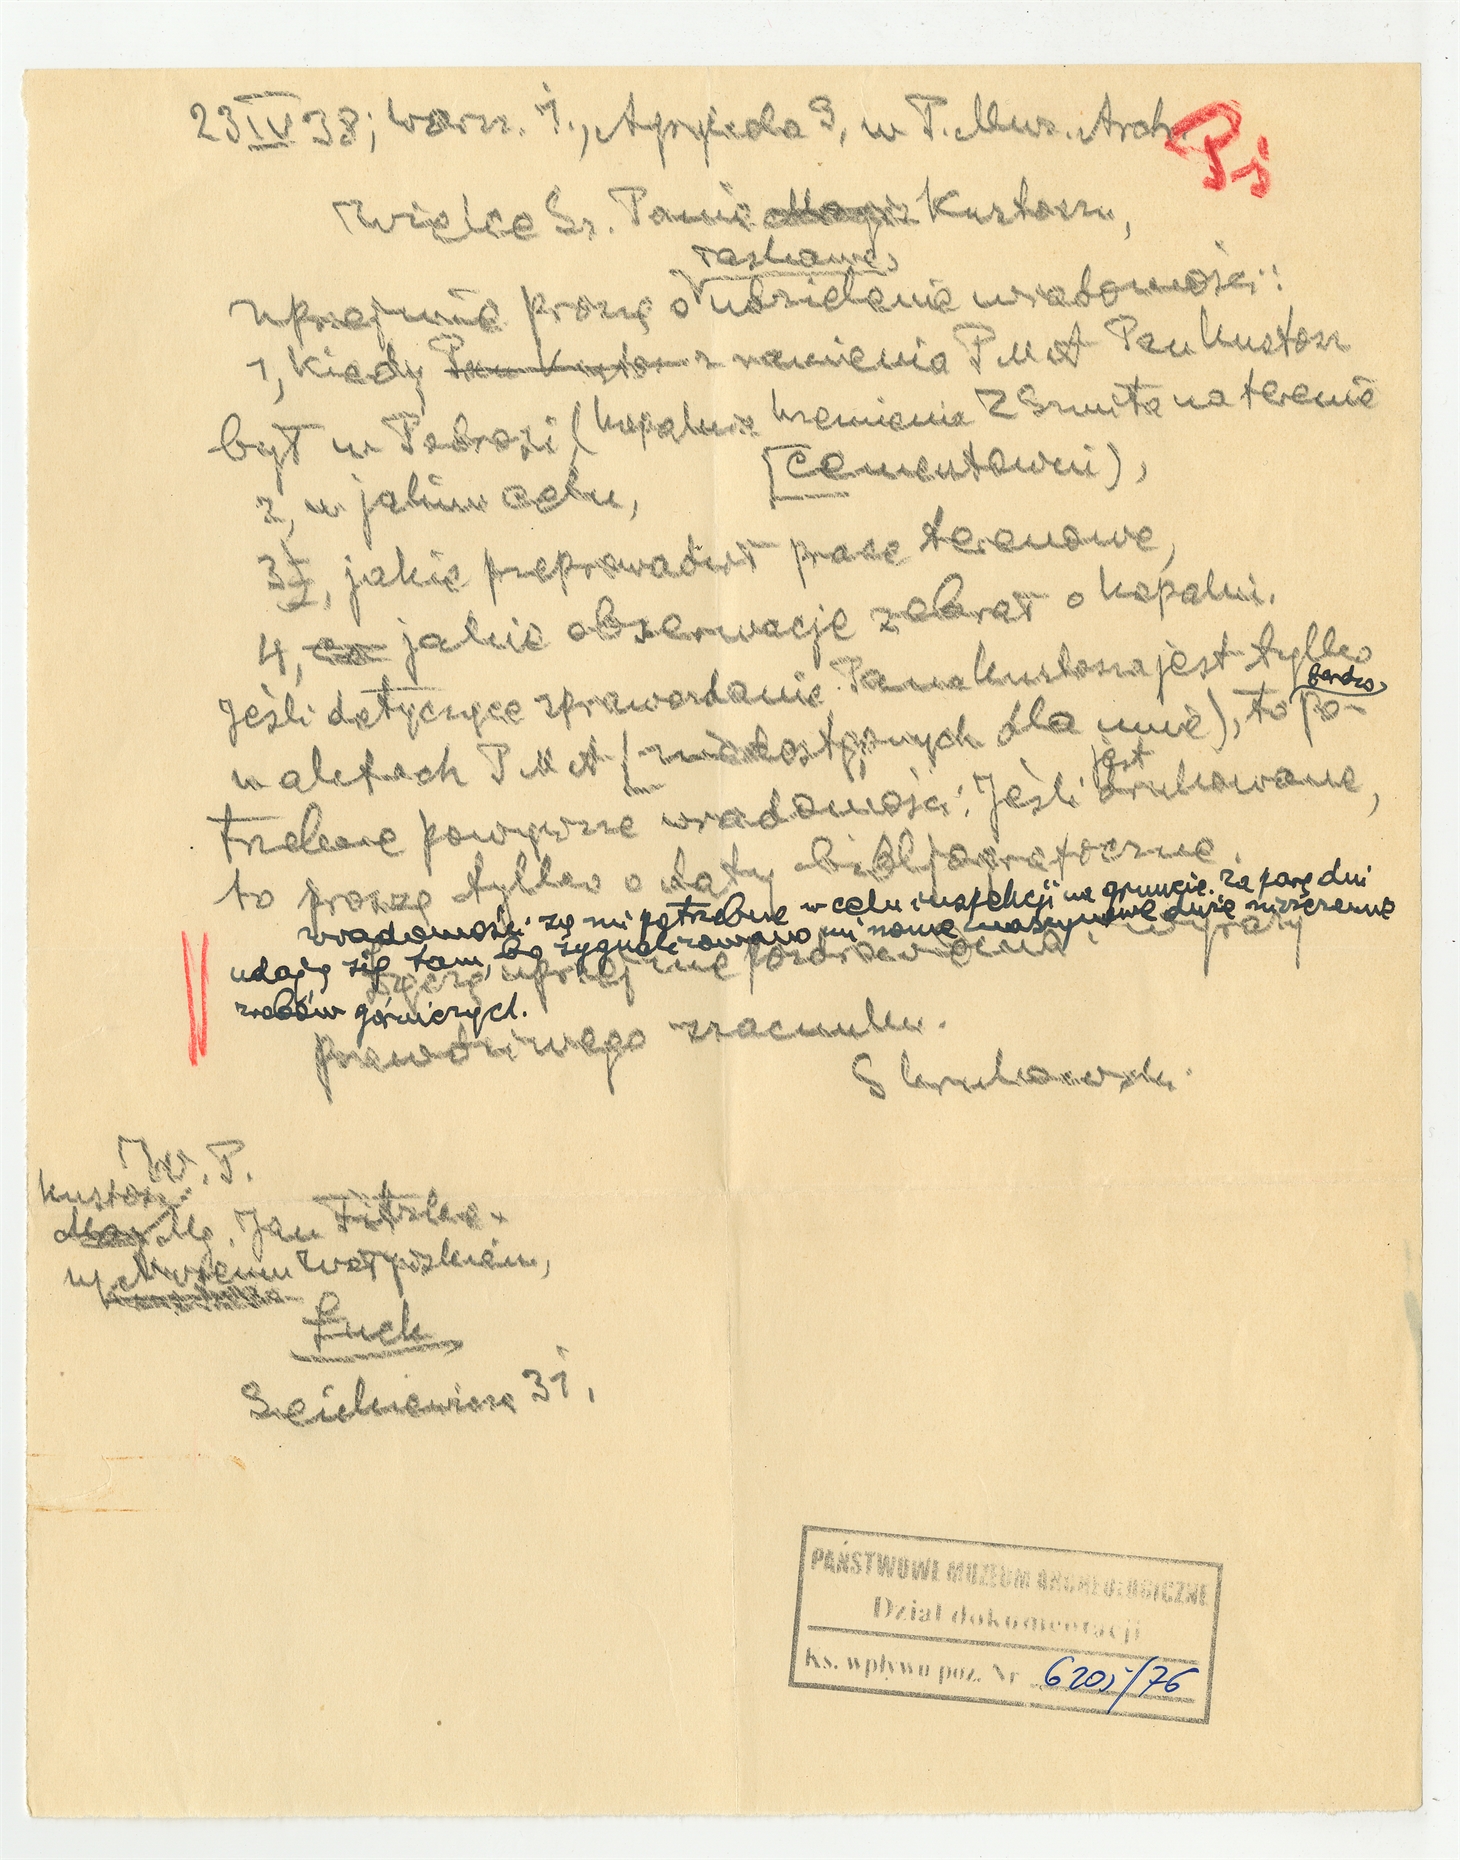 23 IV 38; Warsz. 1., Agrykola 9, w P. Muz. Arch.
Pś
Wielce Sz. Panie Kustoszu,
łaskawe
uprzejmie proszę o udzielenie wiadomości:
1, Kiedy Pan Kustosz z ramienia PMA Pan Kustosz
był w Podrosi (kopalnia krzemienia na terenie
[cementowni),
2, w jakim celu,
3, jakie przeprowadził prace terenowe,
4, co jakie obserwacje zebrał o kopalni.
Jeśli dotyczące sprawozdanie Pana Kustosza jest tylko
bardzo
w aktach PMA (niedostępnych dla mnie), to po-
jest
trzebne powyższe wiadomości; Jeśli drukowane,
to proszę tylko o daty bibljograficzne.
wiadomości są mi potrzebne w celu inspekcji na gruncie. Za parę dni
udaję się tam, bo zygnalizowano mi nowe masynowe duże niszczenie
zrobów górniczych.
Łączę uprzejme pozdrowienia i wyrazy
prawdziwego szacunku.
S Krukowski.
W. P.
Kustosz
Mg. Jan Fitzke
w Muzeum Wołyńskiem,
Łuck
Sienkiewicza 31,
PAŃSTWOWE MUZEUM ARCHEOLOGICZNE
Dział dokumentacji
Ks. wpływu poz. Nr 6205/76